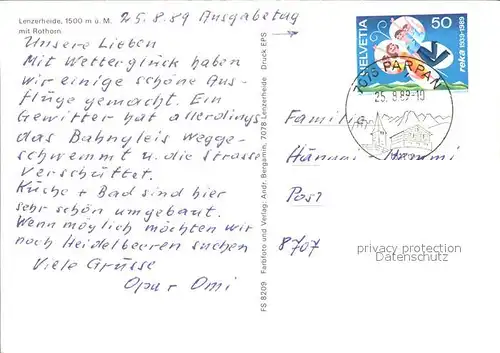 Lenzerheide, 1500 m ü. M.
mit Rothorn
25.8.89 Ausgabetag
Unsere Lieben
Mit Wetterglück haben
wir einige schöne Aus-
flüge gemacht. Ein
Gewitter hat allerdings
das Bahngleis wegge-
schwemmt u. die Strasse
verschüttet.
Küche + Bad sind hier
sehr schön umgebaut.
Wenn möglich möchten wir
noch Heidelbeeren suchen
Viele Grüsse
Opa + Omi
FS 8209 Farbfoto und Verlag: Andr. Bergamin, 7078 Lenzerheide Druck EPS
HELVETIA
50
reka 1939-1989
7076 PARPAN
25.8.89-10
Familie
Post
8707
privacy protection
Datenschutz